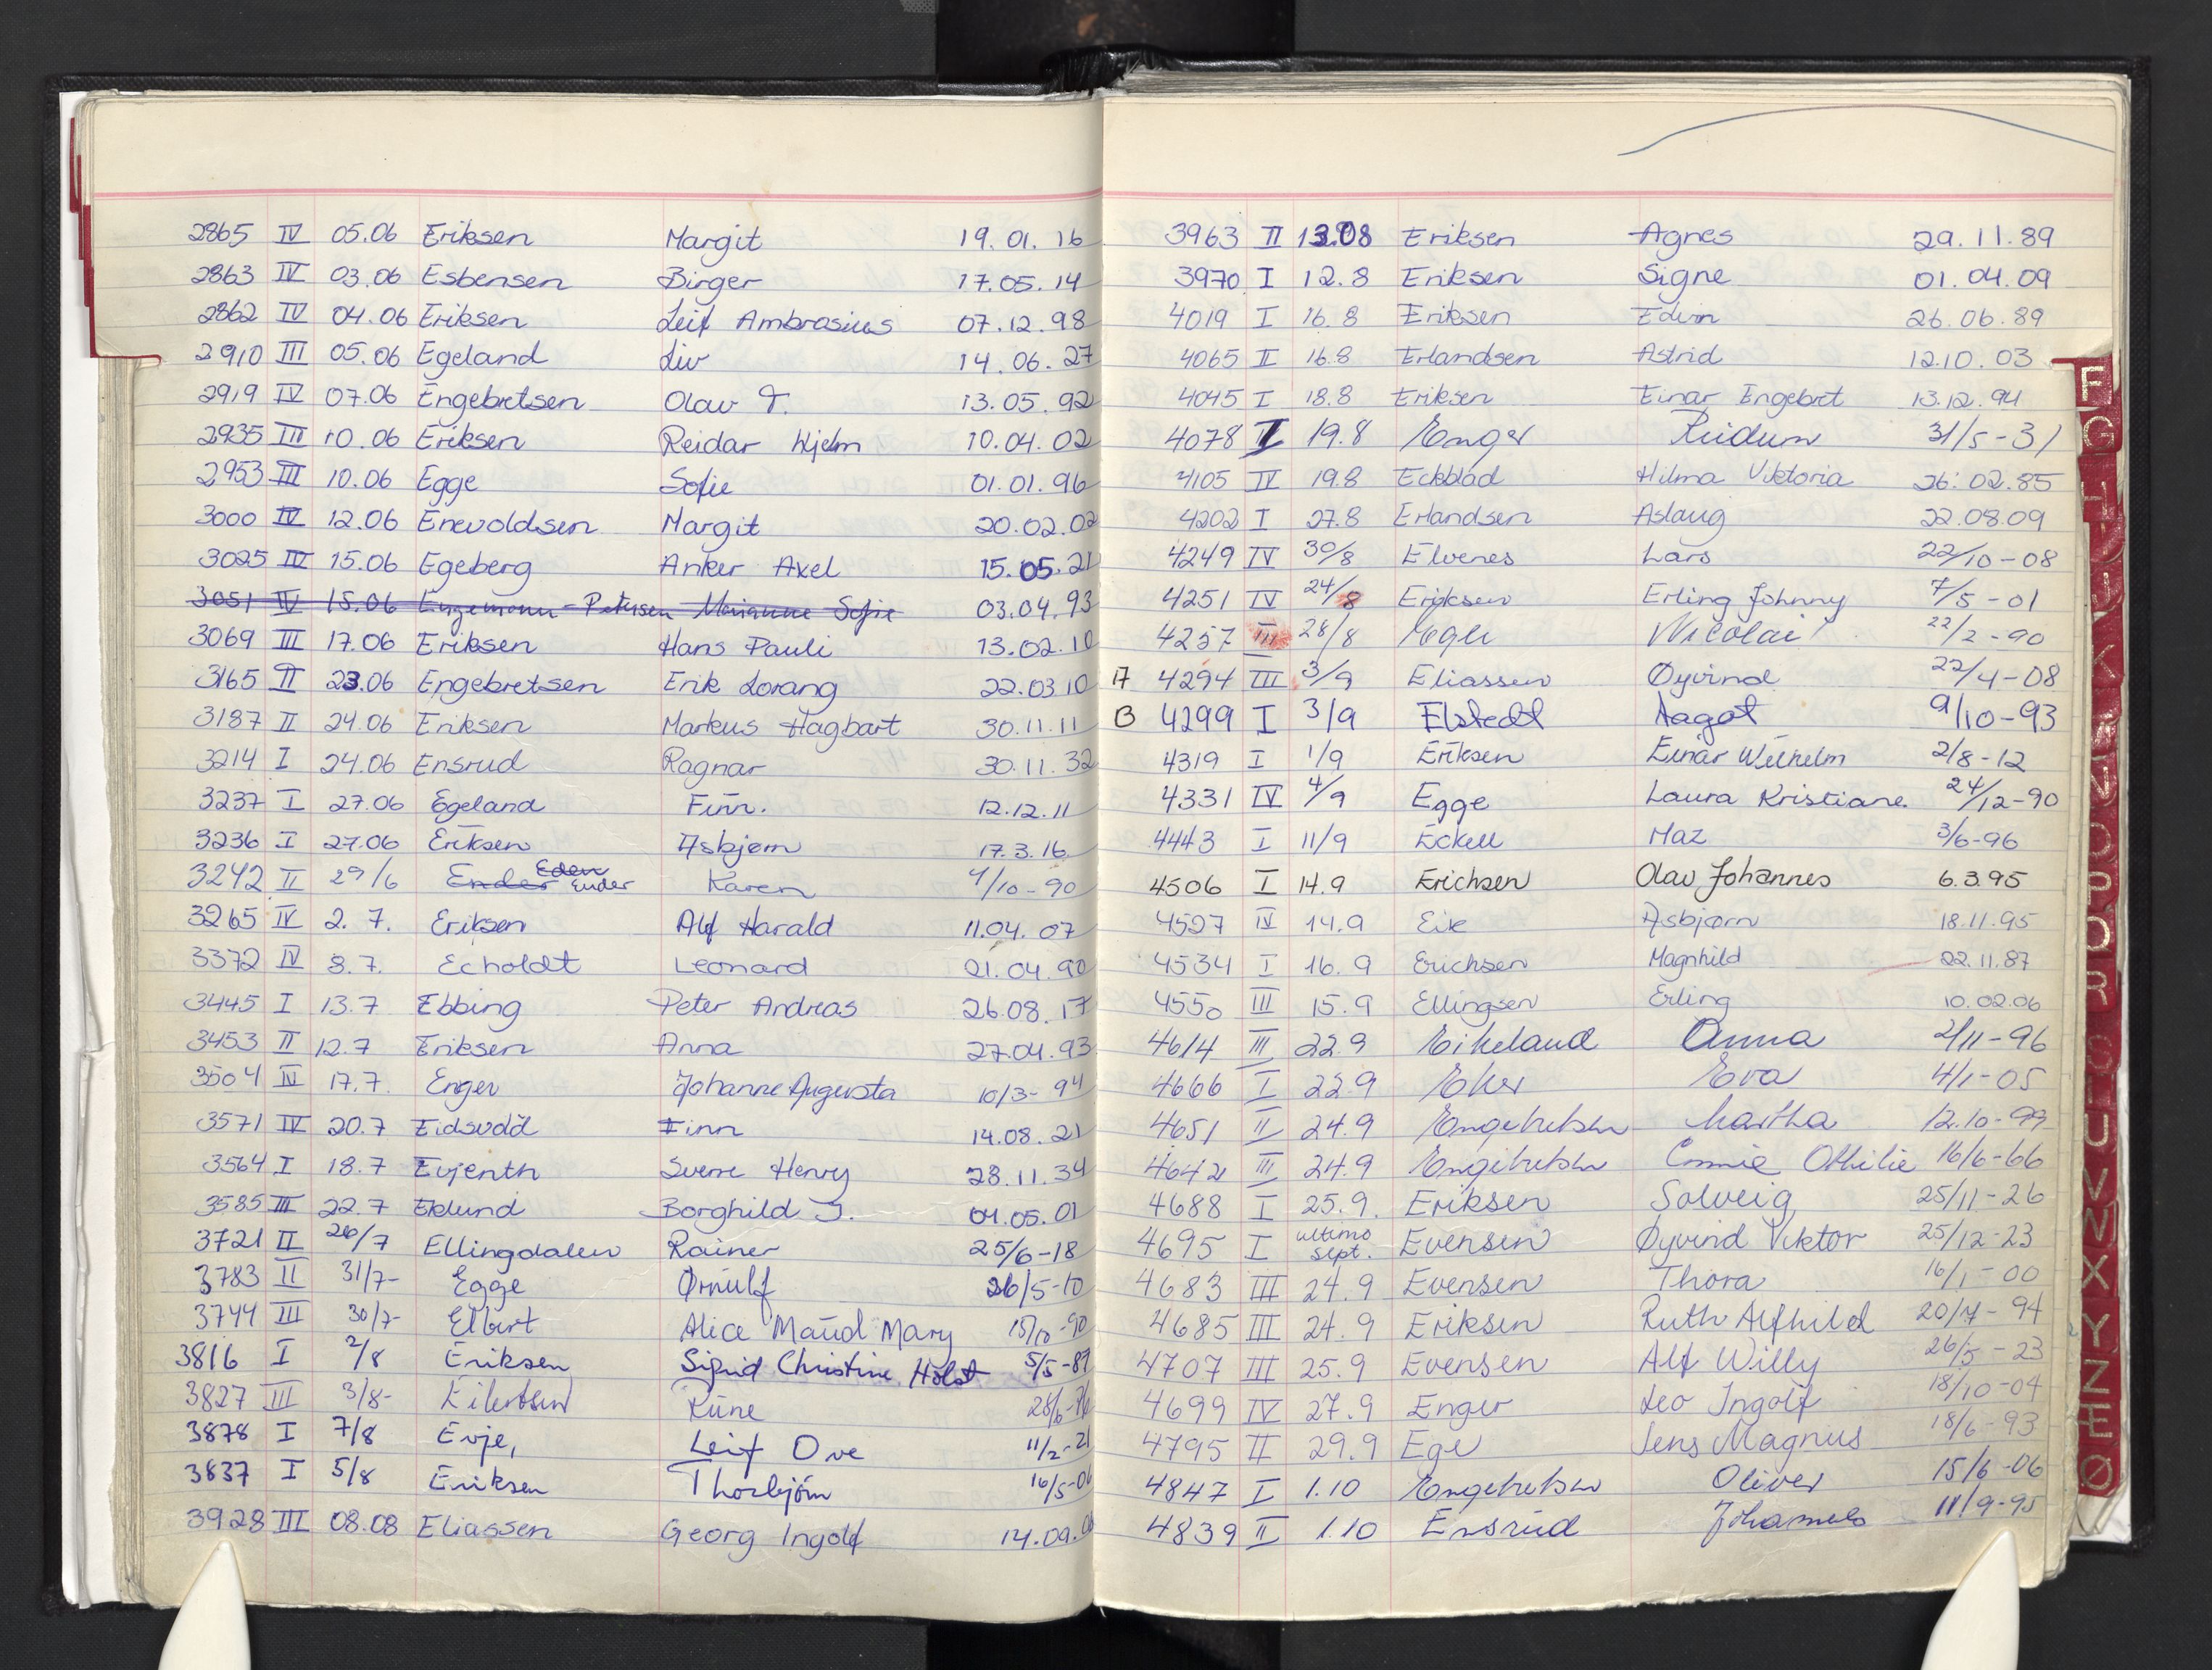 2865 IV 05.06 Eriksen Margit 19.01.16
2863 IV 03.06 Esbensen Birger 17.05.14
2862 IV 04.06 Eriksen Leif Ambrosius 07.12.98
2910 III 05.06 Egeland Liv 14.06.27
2919 IV 07.06 Engebretsen Olav T. 13.05.92
2935 III 10.06 Eriksen Reidar Hjelm 10.04.02
2953 III 10.06 Egge Sofie 01.01.96
3000 IV 12.06 Enevoldsen Margit 20.02.02
3025 IV 15.06 Egeberg Anker Axel 15.05.21
3051 IV 15.06 Engemann-Petersen Marianne Sofie 03.04.93
3069 III 17.06 Eriksen Hans Pauli 13.02.10
3165 II 23.06 Engebretsen Erik Lorang 22.03.10
3187 II 24.06 Eriksen Markus Hagbart 30.11.11
3214 I 24.06 Ensrud Ragnar 30.11.32
3237 I 27.06 Egeland Finn. 12.12.11
3236 I 27.06 Eriksen Asbjørn 17.3.16
3242 II 29/6 Ender Eden Euder Karen 4/10-90
3265 IV 2.7. Eriksen Alf Harald 11.04.07
3372 IV 8.7. Echoldt Leonard 21.04.90
3445 I 13.7 Ebbing Peter Andreas 26.08.17
3453 II 12.7 Eriksen Anna 27.04.93
3504 IV 17.7. Enger Johanne Augusta 10/3-94
3571 IV 20.7 Eidsvold Finn 14.08.21
3564 I 18.7 Evjenth Sverre Henry 28.11.34
3585 III 22.7 Eklund Borghild J. 04.05.01
3721 II 26/7 Ellingdalen Rainer 25/6-18
3783 II 31/7- Egge Ørnulf 26/5-10
3744 III 30/7- Elbert Alice Maud Mary 15/10-90
3816 I 2/8 Eriksen Sigrid Christine Holst 5/5-87
3827 III 3/8- Eilertsen Rune
3878 I 7/8 Evje, Leif Ove 11/2-21
3837 I 5/8 Eriksen Thorbjörn 16/5-06
3928 III 08.08 Eliassen Georg Ingolf 14.09.06
3963 II 13.08 Eriksen Agnes 29.11.89
3970 I 12.8 Eriksen Signe 01.04.09
4019 I 16.8 Eriksen Edvin 26.06.89
4065 II 16.8 Erlandsen Astrid 12.10.03
4045 I 18.8 Eriksen Einar Engebret 13.12.94
4078 I 19.8 Enger Reidun 31/5-31
4105 IV 19.8 Eckblad Hilma Viktoria 26.02.85
4202 I 27.8 Erlandsen Aslaug 22.08.09
4249 IV 30/8 Elvenes Lars 22/10-08
4251 IV 24/8 Eriksen Erling Johnny 7/5-01
4257 III 28/8 Egli Nicolai 22/2-90
A 4294 III 3/9 Eliassen Øyvind 22/4-08
B 4299 I 3/9 Elstedt Aagot 9/10-93
4319 I 1/9 Eriksen Einar Wilhelm 2/8-12
4331 IV 4/9 Egge Laura Kristiane 24/12-90
4443 I 11/9 Eckell Maz 3/6-96
4506 I 14.9 Erichsen Olav Johannes 6.3.95
4527 IV 14.9 Eik Asbjørn 18.11.95
4534 I 16.9 Erichsen Magnhild 22.11.87
4550 III 15.9 Ellingsen Erling 10.02.06
4614 III 22.9 Eikeland Anna 2/11-96
4666 I 22.9 Eker Eva 4/1-05
4651 II 24.9 Engebretsen Martha 12.10-99
4642 III 24.9 Engebretsen Emmie Othilie 16/6-66
4688 I 25.9. Eriksen Solveig 25/11-26
4695 I ultimo sept. Evensen Øyvind Viktor 25/12-23
4683 III 24.9 Evensen Thora 16/1-00
4685 III 24.9 Eriksen Ruth Alfhild 20/7-94
4707 III 25.9 Evensen Alf Willy 26/5-23
4699 IV 27.9 Enger Leo Ingolf 18/10-04
4795 II 29.9 Ege Jens Magnus 18/6-93
4847 I 1.10 Engebretsen Oliver 15/6-06
4839 II 1.10 Ensrud Johannes 11/9-95
F
G
H
I
J
K
L
M
N
O
P
Q
R
S
T
U
V
W
X
Y
Z
Æ
Ø